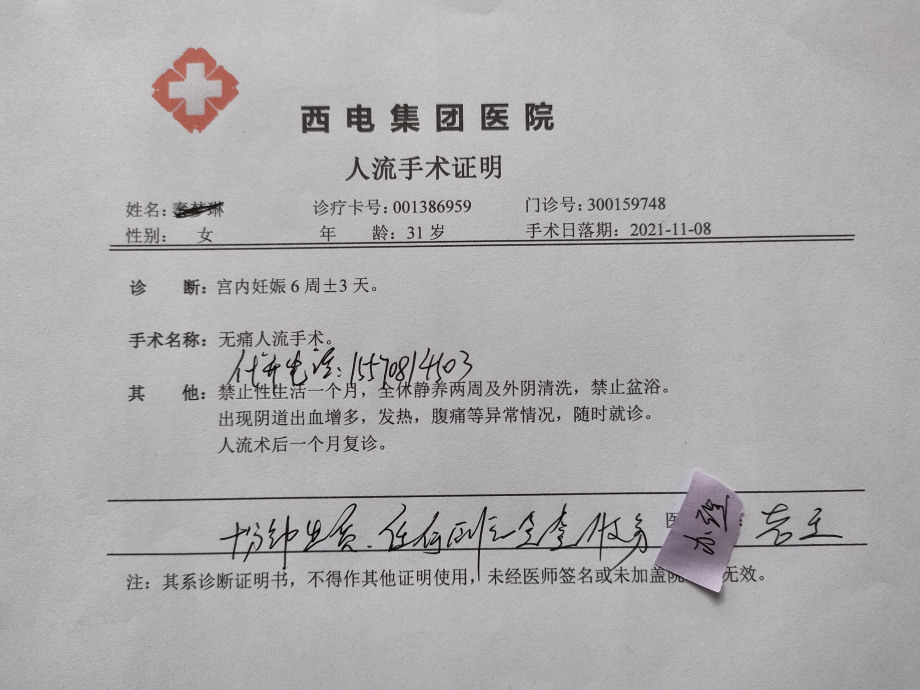 西电集团医院
人流手术证明
姓名: 诊疗卡号:001386959 门诊号:300159748
性别: 女 年 龄:31岁 手术日落期:2021-11-08
诊 断:宫内妊娠6周±3天。
手术名称:无痛人流手术。
代开电话:15570814503
其 他:禁止性生活一个月,全休静养两周及外阴清洗,禁止盆浴。
出现阴道出血增多,发热,腹痛等异常情况,随时就诊。
人流术后一个月复诊。
十分钟出
医
注:其系诊断证明书,不得作其他证明使用,未经医师签名或未加盖院 无效。